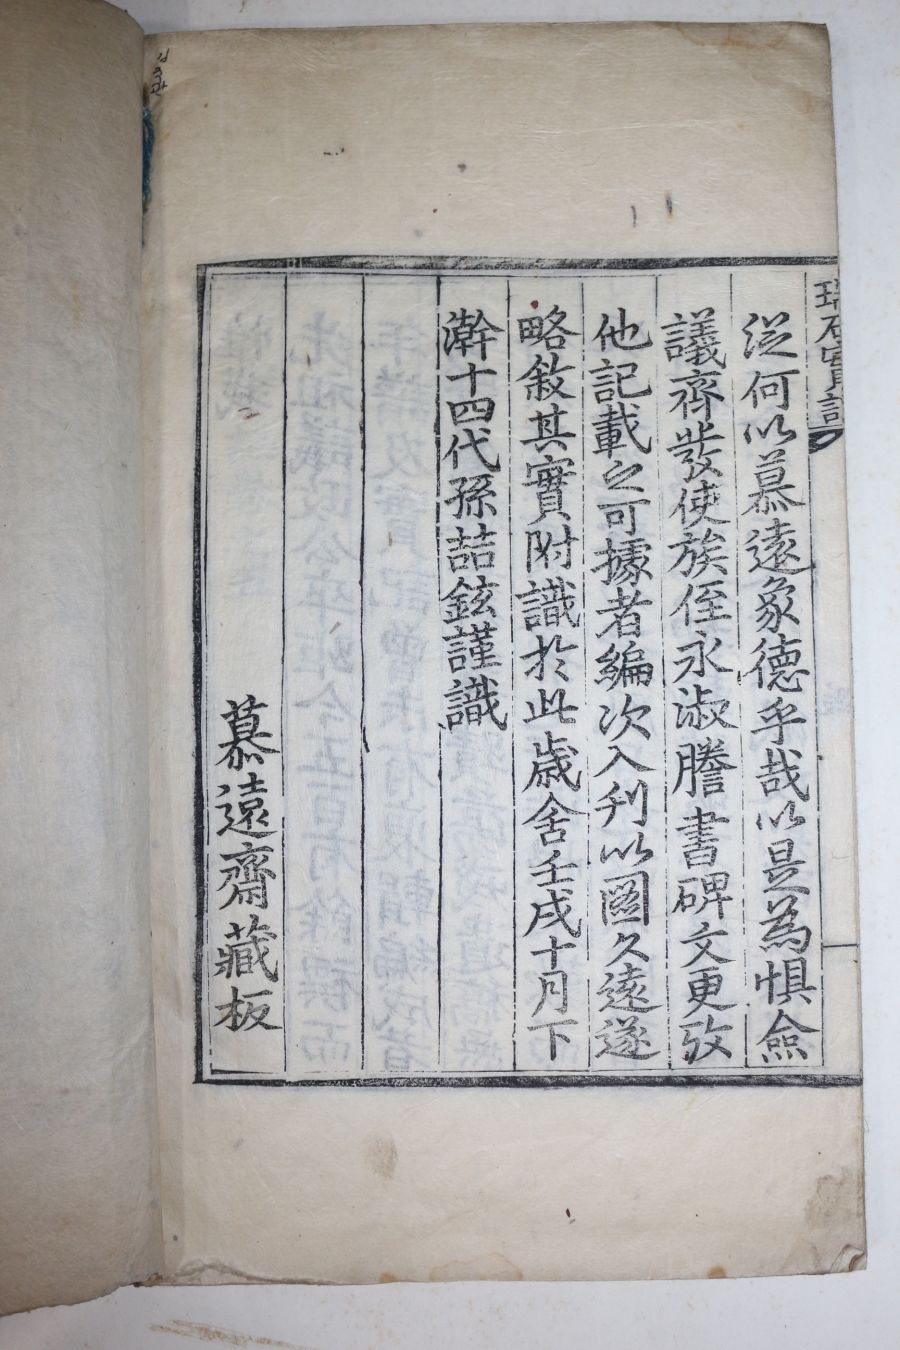 從何以慕遠象德乎哉以是爲惧僉
議齊發使族侄永淑謄書碑文更攷
他記載之可據者編次入刊以圖久遠遂
略敘其實附識於此歲舍壬戌十月下
澣十四代孫喆鉉謹識
慕遠齋藏板